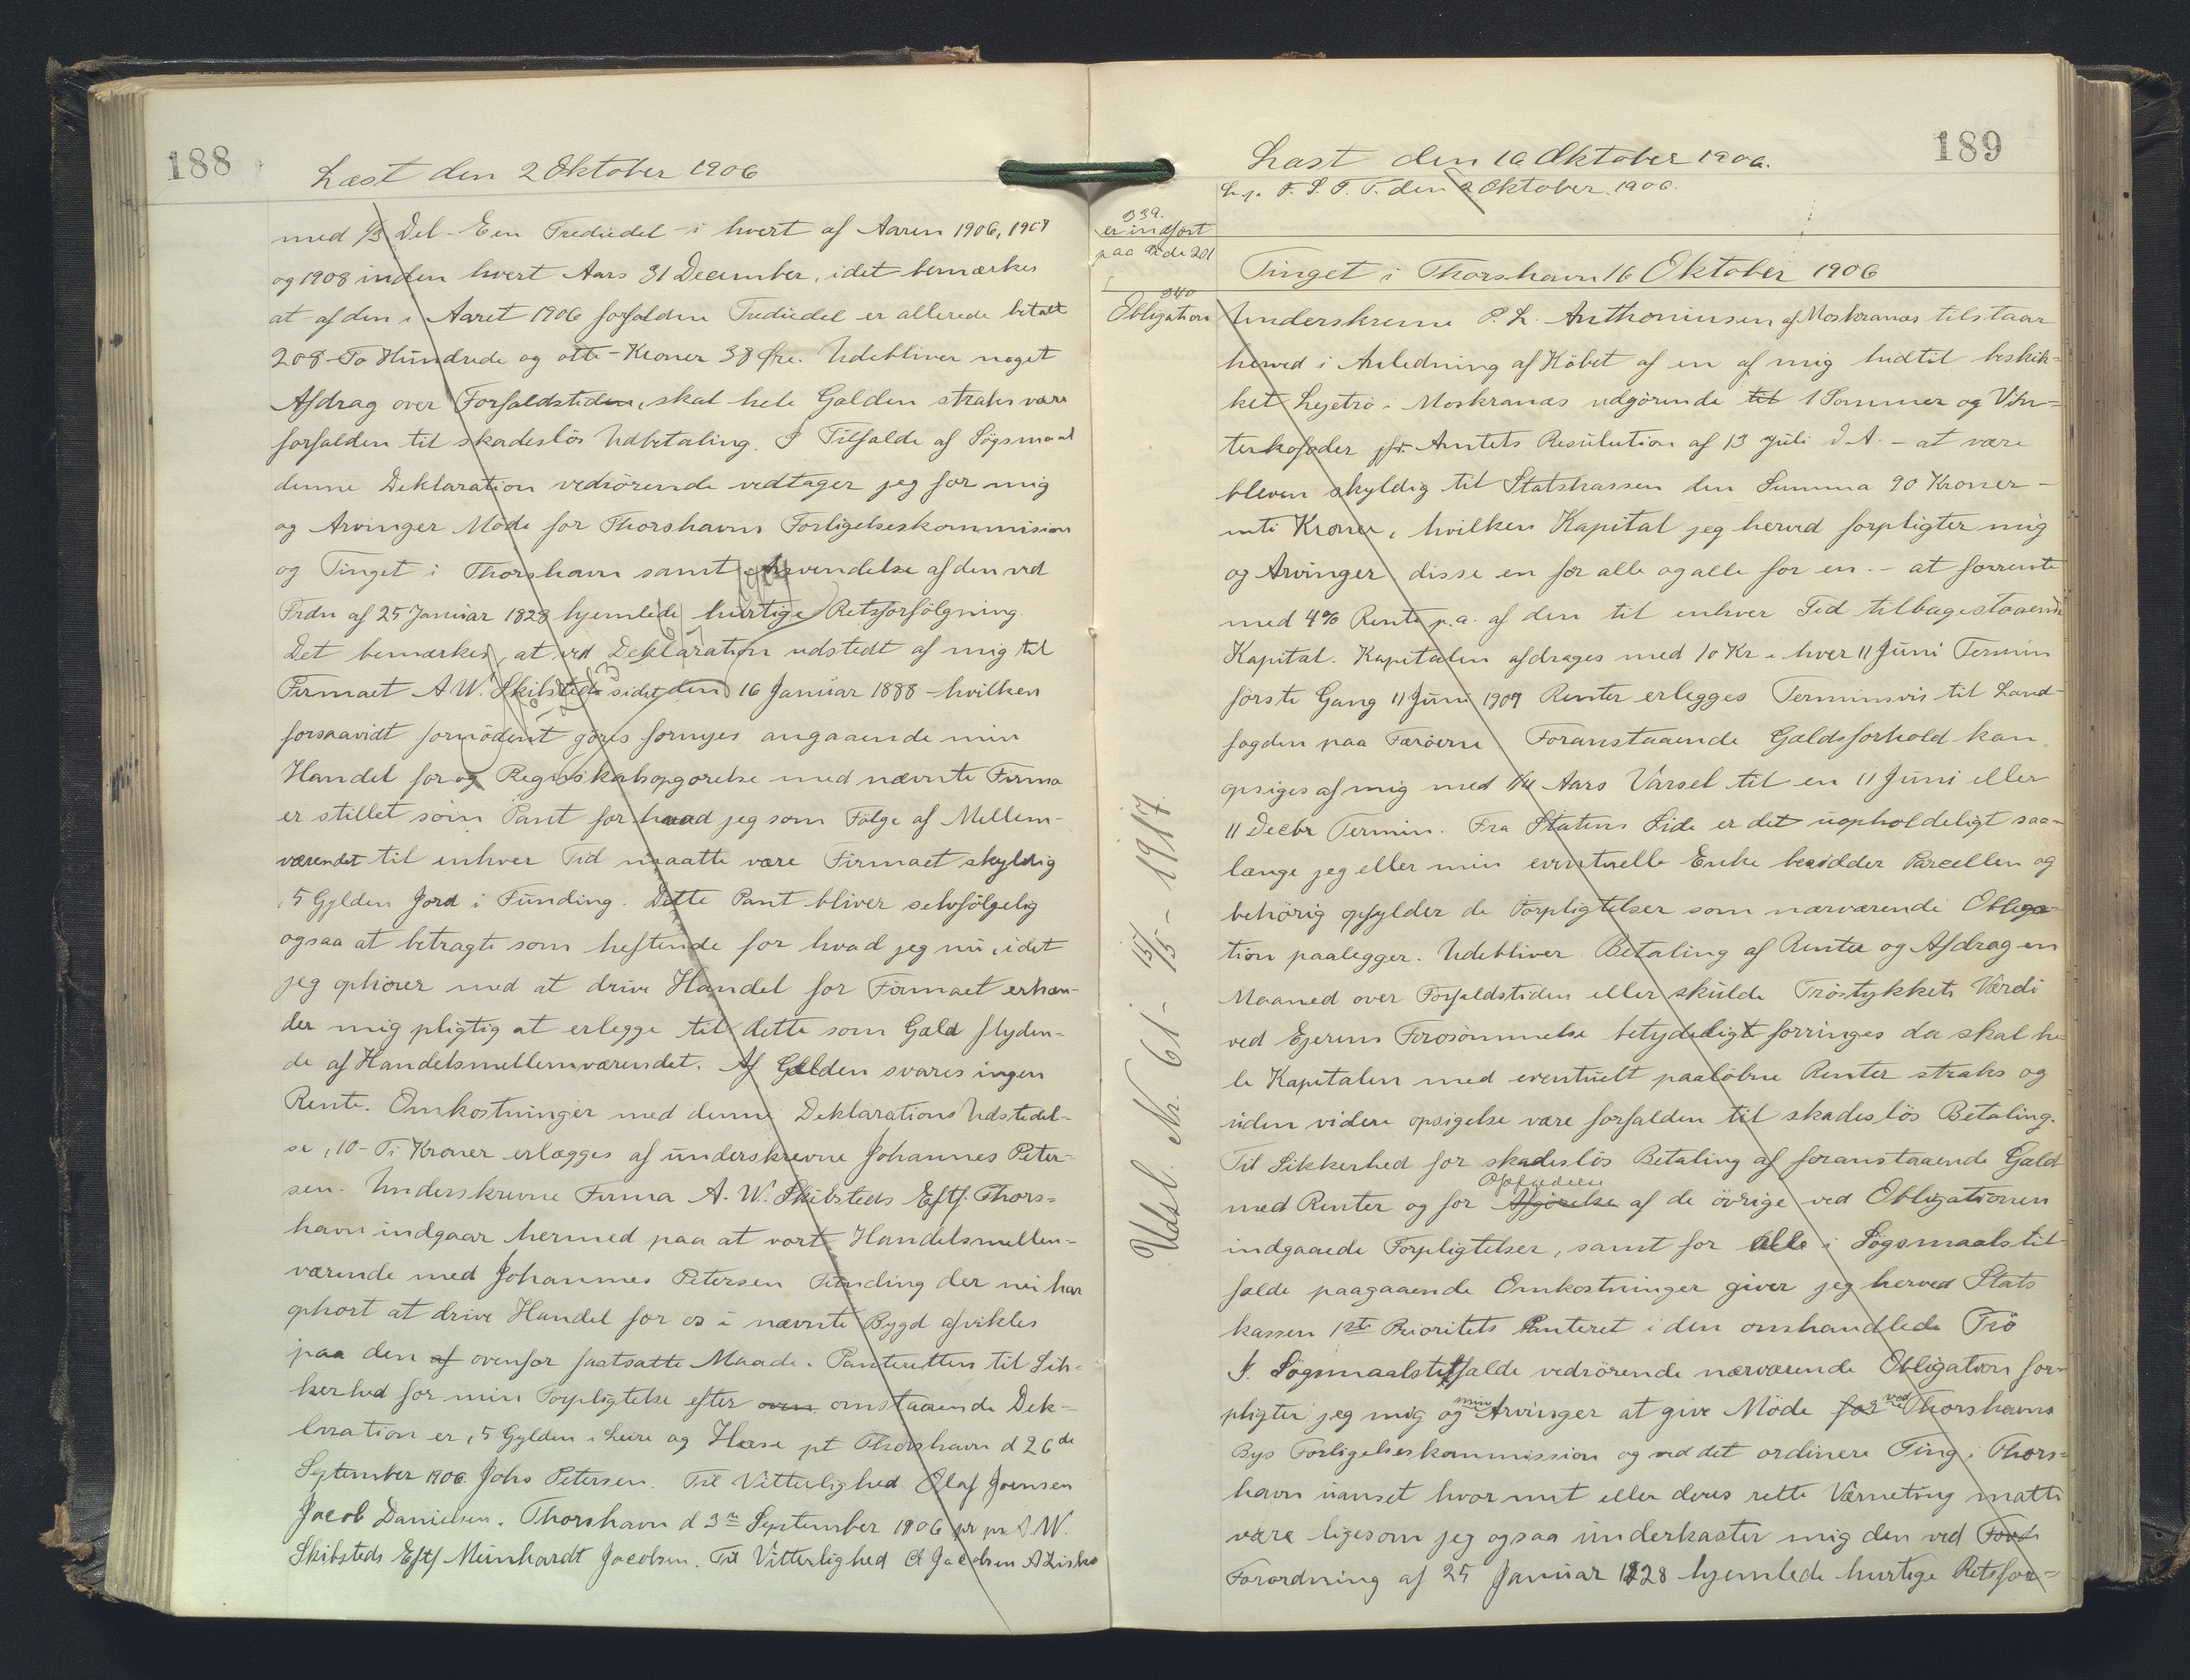 188
Læst den 2 Oktober 1906
med 1/3 Del - Een Trediedel - i hvert af Aaren 1906, 1907
og 1908 inden hvert Aars 31 December, idet bemærkes
at af den i Aaret 1906 forfaldne Trediedel er allerede betalt
208 - To Hundrede og otte - Kroner 38 Øre. Udebliver noget
Afdrag over Forfaldstiden, skal hele Gælden straks være
forfalden til skadeslös Udbetaling. I Tilfælde af Søgsmaal
denne Deklaration vedrørende vedtager jeg for mig
og Arvinger Møde for Thorshavns Forligelseskommision
og Tinget i Thorshavn samt Anvendelse af den ved
Frdn af 25 Januar 1828 hjemlede hurtige Retsforfölgning.
Det bemærkes, at ved Deklaration udstedt af mig til
Firmaet A W. Skibsteds sidst den 16 Januar 1888 - hvilken
forsaavidt fornödent göres fornyes angaaende min
Handel for og Regnskabsopgörelse med nævnte Firma
er stillet som Pant for hvad jeg som Fölge af Mellem-
værendet til enhver Tid maatte være Firmaet skyldig
5 Gylden Jord i Funding. Dette Pant bliver selvfölgelig
ogsaa at betragte som heftende for hvad jeg nu, idet
jeg ophörer med at drive Handel for Firmaet erken-
der mig pligtig at erlegge til dette som Gæld flyden-
de af Handelsmellemværendet. Af Gælden svares ingen
Rente. Omkostninger med denne Deklarations Udstedel-
se, 10 - Ti Kroner erlægges af underskrevne Johannes Peter-
sen. Underskrevne Firma A. W. Skibsteds Eftf. Thors-
havn indgaar hermed paa at vort Handelsmellem-
værende med Johannes Petersen Funding der nu har
ophort at drive Handel for os i nævnte Bygd afvikles
paa den af ovenfor fastsatte Maade. Panteretten til Sik-
kerhed for min Forpligtelse efter oven omstaaende Dek-
laration er, 5 Gylden i Leire og Høse pt Thorshavn d 26de
September 1906. Johs Petersen. Til Vitterlighed Olaf Joensen
Jacob Danielsen. Thorshavn d 3n September 1906 pr pr A W.
Skibsteds Eftf Meinhardt Jacobsen. Til Vitterlighed Jacobsen
189
Læst den 16 Oktober 1906.
F. S. T. T. den 2 Oktober 1906.
339.
er indført
paa Side 201
Tinget i Thorshavn 16 Oktober 1906
340
Obligation
Underskrevne P. L. Anthoniusen af Moskranæs tilstaar
herved i Anledning af Köbet af en af mig hidtil beskik-
ket Lejetrö i Moskranæs udgörende til 1 Sommer og Vin-
terkofoder jfr. Amtets Resulution af 13 Juli d. A. - at være
bleven skyldig til Statskassen den Summa 90 Kroner -
niti Kroner, hvilken Kapital jeg herved forpligter mig
og Arvinger disse en for alle og alle for en - at forrente
med 4% Rente p.a. af den til enhver Tid tilbagestaaende
Kapital. Kapitalen afdrages med 10 Kr i hver 11 Juni Termin
förste Gang 11 Juni 1907 Renter erlegges Terminsvis til Land-
fogden paa Færöerne Foranstaaende Gældsforhold kan
opsiges af mig med 1/4 Aars Varsel til en 11 Juni eller
11 Decbr Termin. Fra Statens Side er det uopholdeligt saa-
længe jeg eller min eventuelle Enke besidder Parcellen og
behörig opfylder de Forpligtelser som nærværende Obliga-
tion paalegger. Udebliver Betaling af Renter og Afdrag en
Maaned over Forfaldstiden eller skulde Tröstykkets Værdi
ved Ejerens Forsömmelse betydeligt forringes da skal he-
le Kapitalen med eventuelt paalöbne Renter straks og
uden videre opsigelse være forfalden til skadeslös Betaling.
Til Sikkerhed for skadeslös Betaling af foranstaaende Gæld
Opfyldelse
med Renter og for Afgörelse af de övrige ved Obligationen
indgaaede Forpligtelser, samt for alle i Søgsmaals til-
fælde paagaaende Omkostninger giver jeg herved Stats
kassen 1ste Prioritets Panteret i den omhandlede Trö
I. Søgsmaalstilfælde vedrörende nærværende Obligation for-
pligter jeg mig og mine Arvinger at give Möde for ved Thorshavns
Bys Forligelseskommission og ved det ordinere Ting i Thors-
havn uanset hvor mit eller deres rette Værneting matte
være ligesom jeg ogsaa underkaster mig den ved Ford
Forordning af 25 Januar 1828 hjemlede hurtige Retsfor-
Udsl. Nr. 61 - 15/5 - 1917